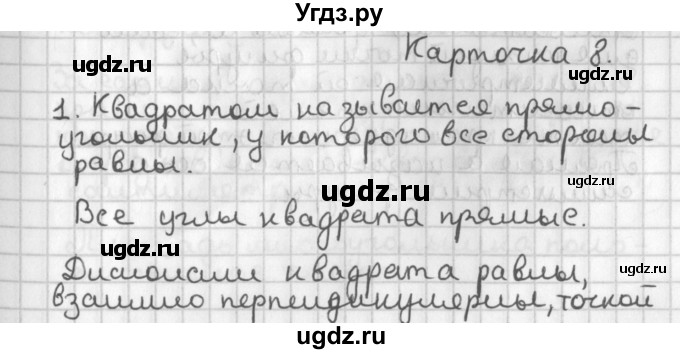 Угдз.ру
Карточка 8.
ugdz.ru
ugdz.ru
1. Квадратом называется прямо-
угольник, у которого все стороны
равны.
ugdz.ru
ugdz.ru
Все углы квадрата прямые.
ugdz.ru
ugdz.ru
Диагонали квадрата равны,
взаимно перпендикулярны, точкой
ugdz.ru